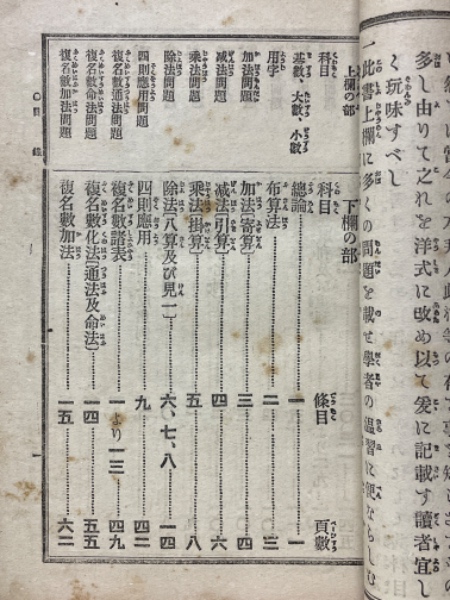 多し由りて之れを洋式に改め以て爰に記載す讀者宜し
く玩味すべし
一此書上欄に多くの問題を載せ學者の溫習に便ならしむ
上欄の部
科目
基數、大數、小數
用字
加法問題
減法問題
乘法問題
除法問題
四則應用問題
複名數通法問題
複名數命法問題
複名數加法問題
下欄の部
科目 條目 頁數
總論 一 一
布算法 二 三
加法〔寄算〕 三 四
減法〔引算〕 四 六
乘法〔掛算〕 五 八
除法〔八算及び見一〕 六、七、八 一四
四則應用 九 四二
複名數諸表 一より一三 四九
複名數化法〔通法及命法〕 一四 五五
複名數加法 一五 六二
〇目錄
一